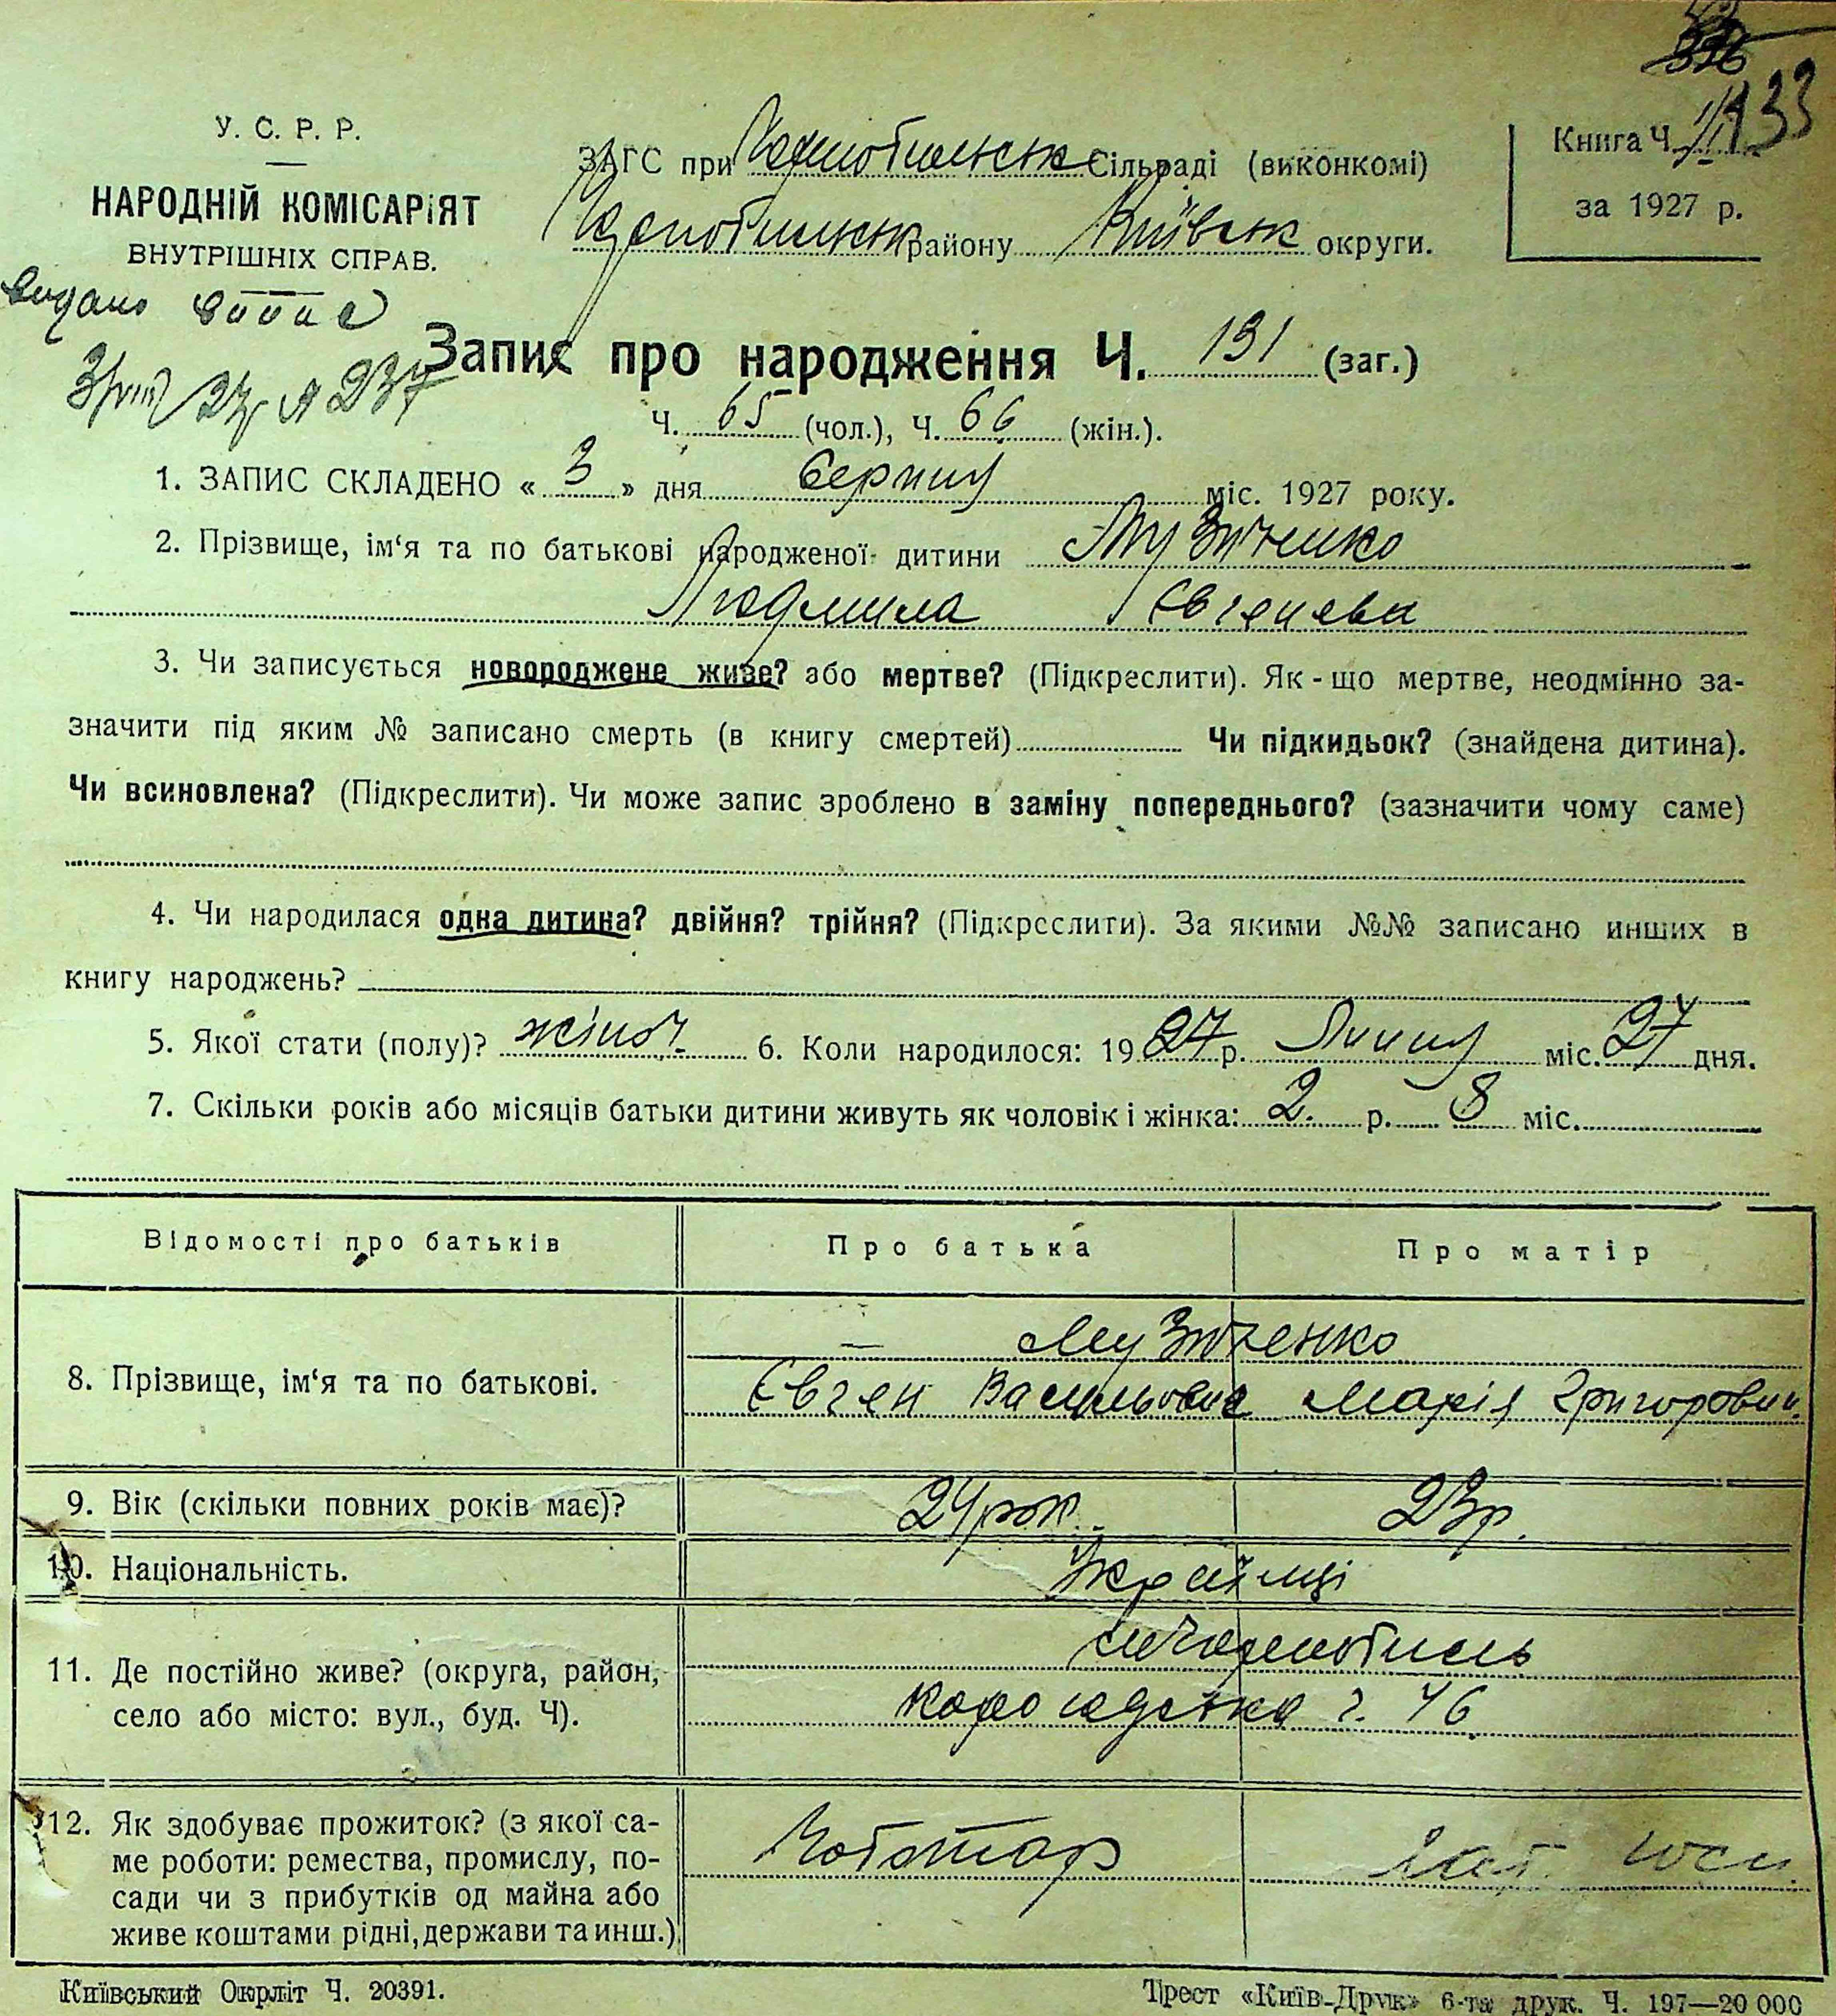 У. С. Р. Р.
НАРОДНІЙ КОМІСАРІЯТ
ВНУТРІШНІХ СПРАВ.
ЗАГС при Чорнобильськ Сільраді (виконкомі)
Чорнобильськ району Київськ округи.
Книга Ч. 133
за 1927 р.
видано випис
3/VIII 27 р № 237
Запис про народження Ч. 131 (заг.)
Ч. 65 (чол.), Ч. 66 (жін.).
1. ЗАПИС СКЛАДЕНО « 3 » дня Серпня міс. 1927 року.
2. Прізвище, ім‘я та по батькові народженої дитини Музиченко
Людмила Євгенієвн
3. Чи записується новороджене живе? або мертве? (Підкреслити). Як-що мертве, неодмінно за-
значити під яким № записано смерть (в книгу смертей) Чи підкидьок? (знайдена дитина).
Чи всиновлена? (Підкреслити). Чи може запис зроблено в заміну попереднього? (зазначити чому саме)
4. Чи народилася одна дитина? двійня? трійня? (Підкреслити). За якими №№ записано инших в
книгу народжень?
5. Якої стати (полу)? жіноч. 6. Коли народилося: 1927 р. Липня міс. 27 дня.
7. Скільки років або місяців батьки дитини живуть як чоловік і жінка: 2 р. 8 міс.
Відомості про батьків Про батька Про матір
8. Прізвище, ім‘я та по батькові.
Музиченко
Євген Васильович Марія Григоровн.
9. Вік (скільки повних років має)? 24 рок. 23 р.
10. Національність. Українці
11. Де постійно живе? (округа, район,
село або місто: вул., буд. Ч).
м Чорнобиль
Корогодська ч. 46
12. Як здобуває прожиток? (з якої са-
ме роботи: ремества, промислу, по-
сади чи з прибутків од майна або
живе коштами рідні, держави та инш.)
Чоботар
Київський Окрліт Ч. 20391.
Трест «Київ-Друк» 6-та друк. Ч. 197—20 000